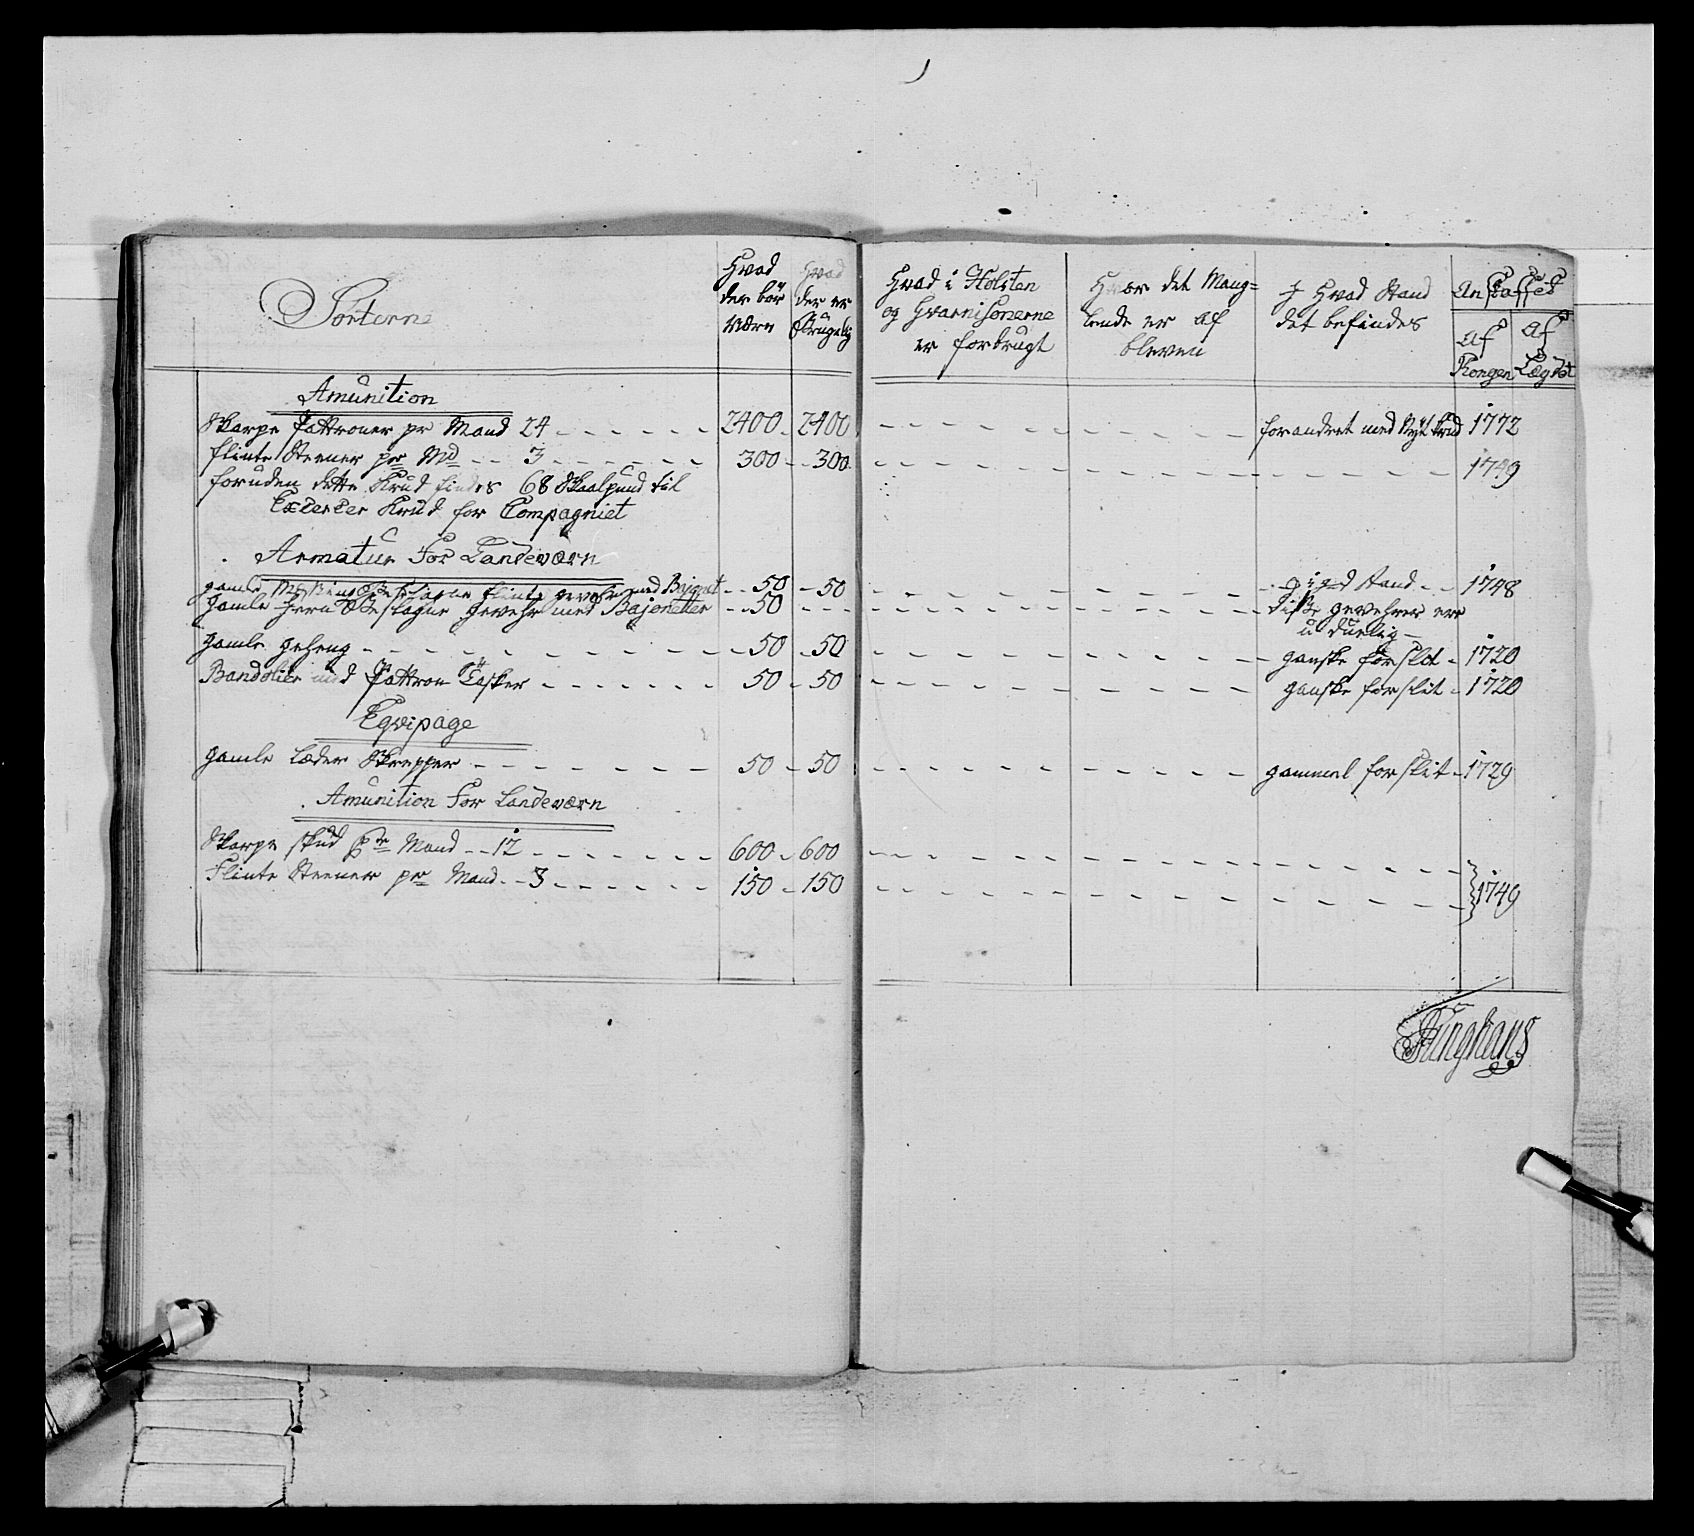 Sorterne
Hvad
der bör
være
Hvad
der er
Brugelig
Hvad i Holsten
og Gvarnisonerne
er forbrugt
Hvor det Mang=
lende er af
bleven
J Hvad Stand
det befindes
Anskaffed
Af
Kongen
Af
Lægdet
Amunition
Skarpe Pattroner pr Mand 24 2400 2400 forandret med Nyt Krud 1772
flinte Steener pr Md 3 300 300 1749
foruden dette Krud findes 68 Skaalpund til
Exercer Krud for Compagniet
Armatur For Landeværn
gamle Messing Beslagne flinte gevehr med Bajonet 50 50 i god Stand 1748
gamle Jern Beslagne gevehr med Bajonetter 50 Disse gevehrer ere
uduelig
gamle geheng 50 50 ganske forslit 1720
Bandolier med Pattron Tasker 50 50 ganske forslit 1720
Eqvipage
gamle Læder Skrepper 50 50 gammel forslit 1729
Amunition For Landeværn
Skarpe skud Pr Mand 12 600 600
Flinte Steener pr Mand 3 150 150 1749
Junghans